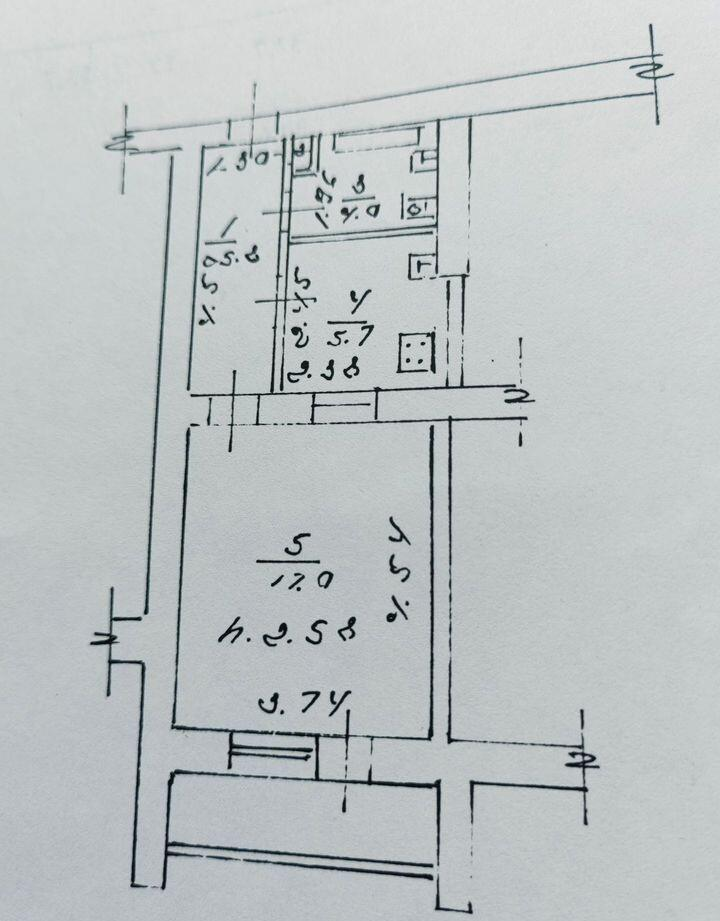 1.30
1.96
3
4.0
1
5.8
4.5
4
5.7
2.38
5
17.0
4.54
h.2.58
3.74